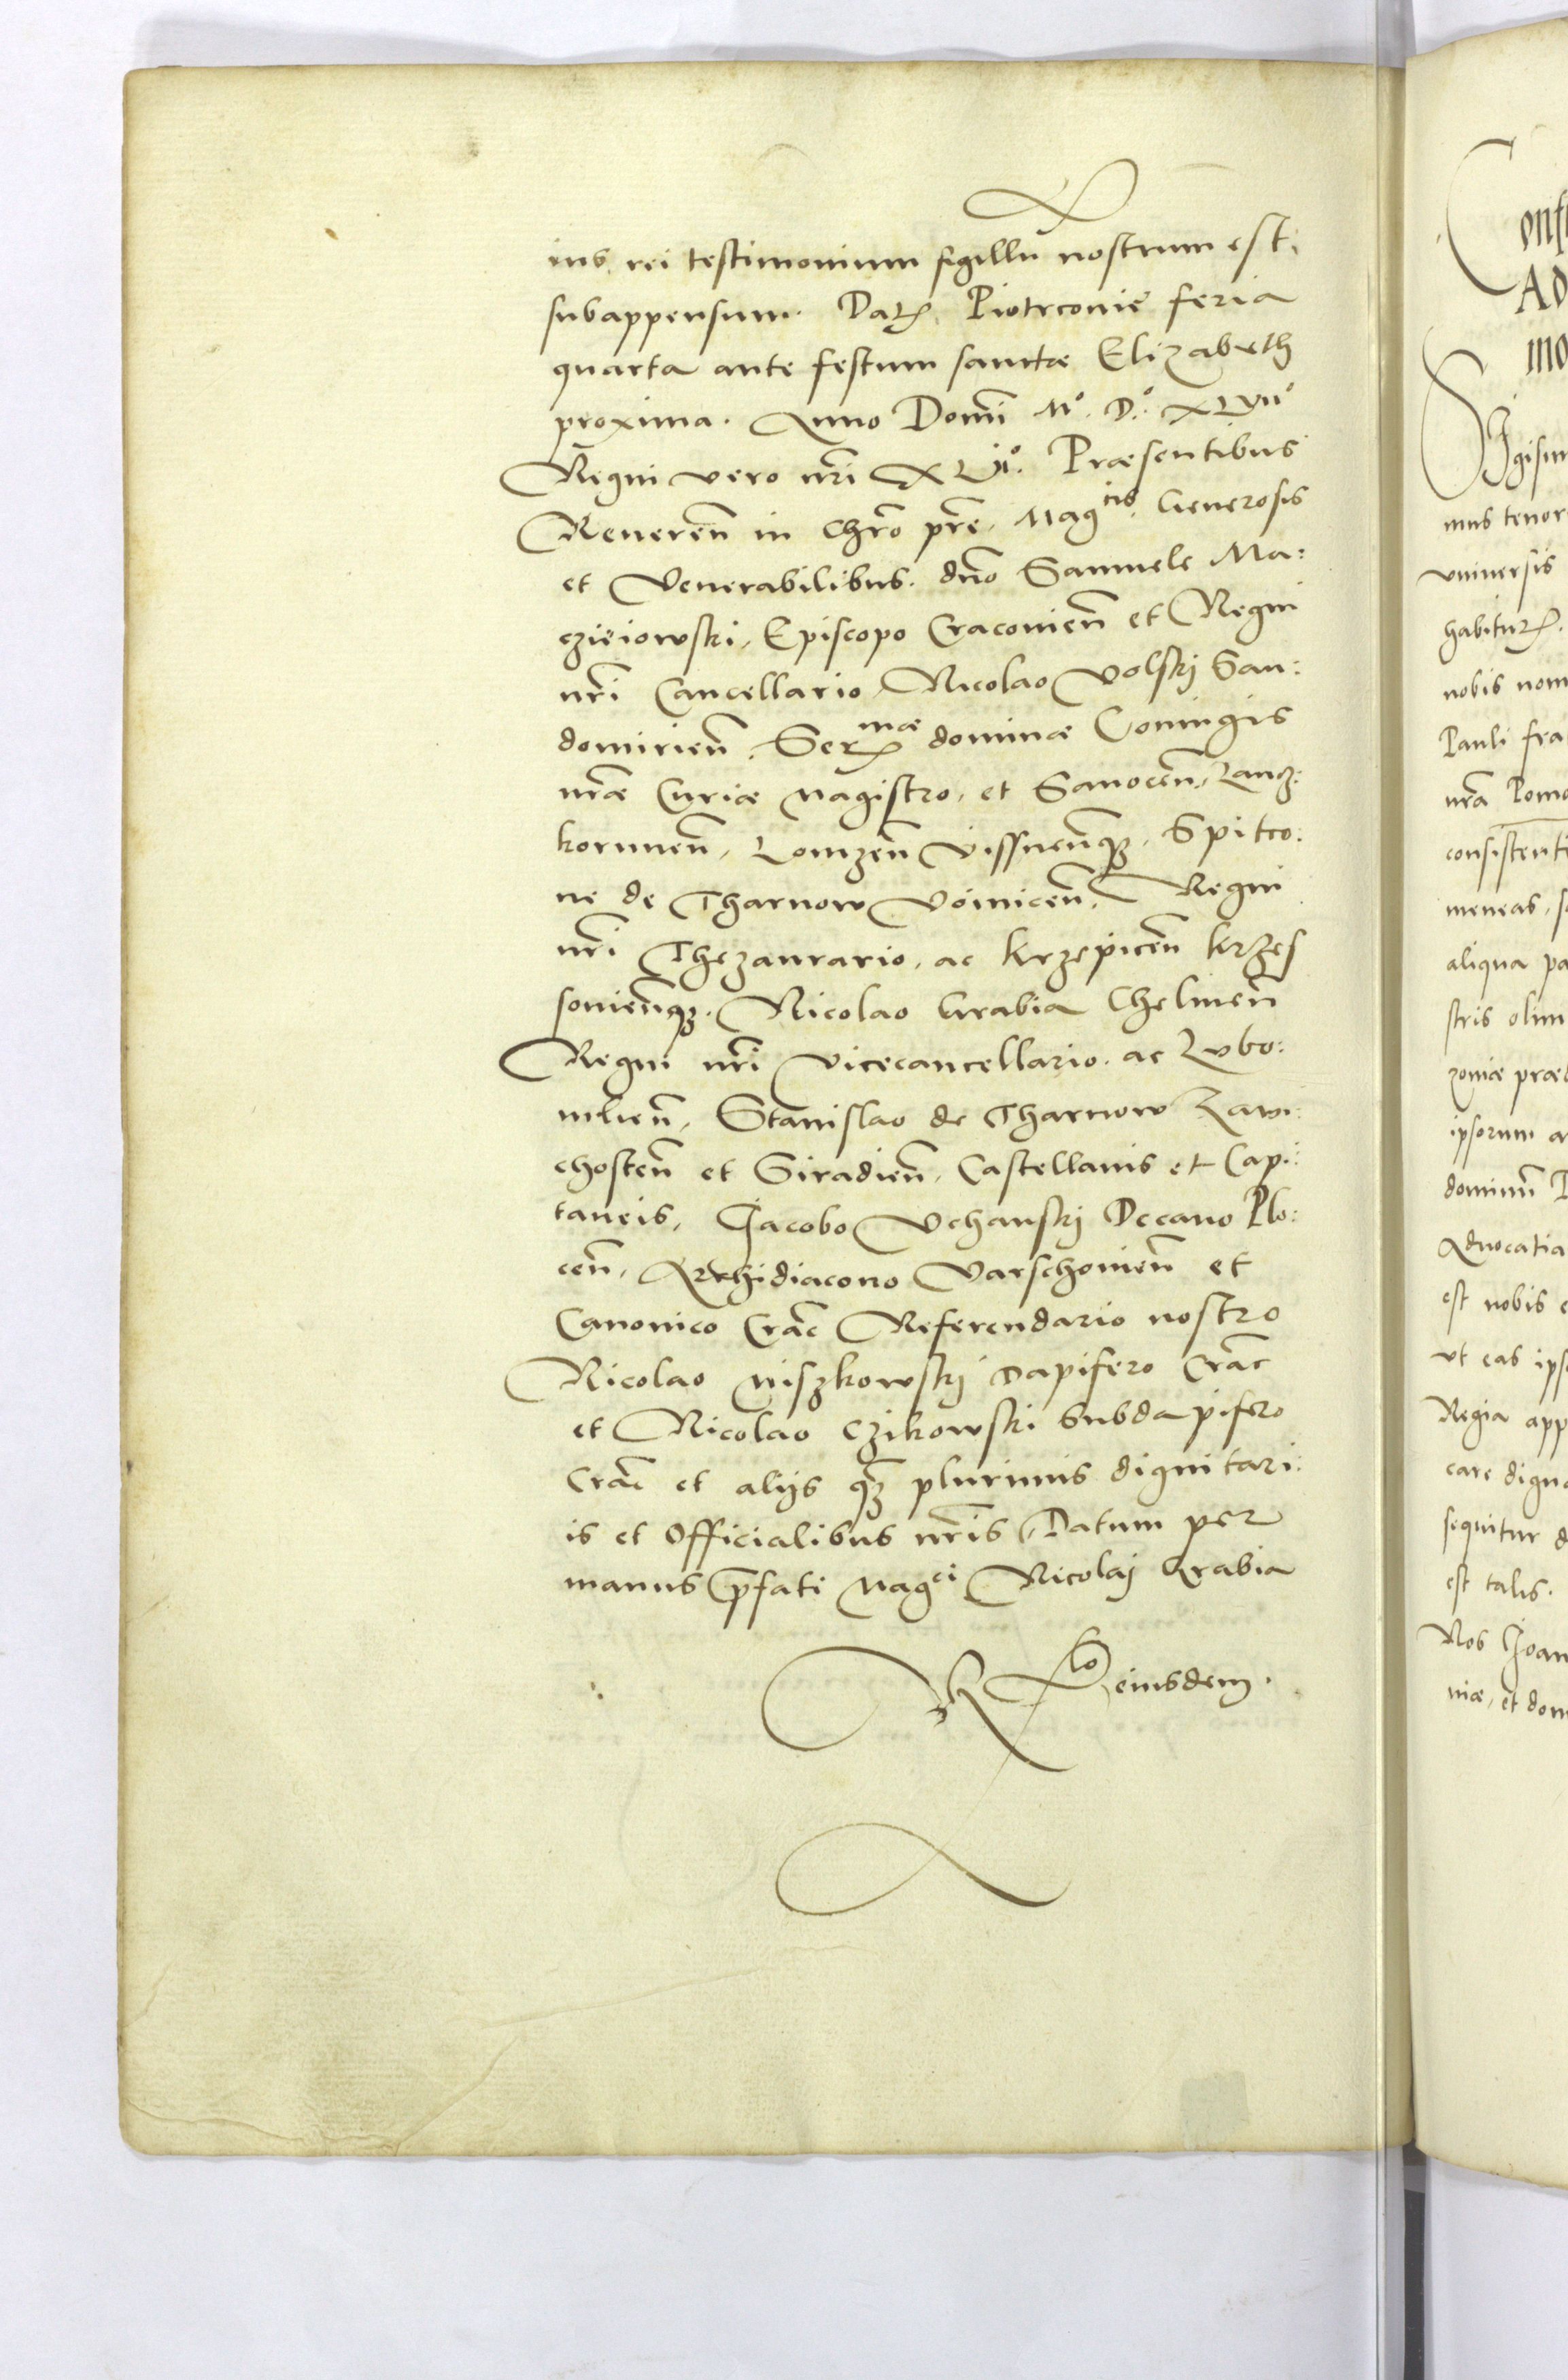 ius rei testimonium sigillu nostrum est
subappensum. Datꝝ Piotrconie feria
quarta ante festum sanctæ Elizabeth
proxima. Anno Domi͞ Mº. Dº. XLVIIº
Regni vero nr͞i XLIº. Præsentibus
Reueren͞ in Chr͞o pr͞e, Mag^cis, Generosis
et Venerabilibus. dn͞o Samuele Ma:
czieiowski, Episcopo Cracouien͞ et Regni
nr͞i Cancellario, Nicolao Volskj San:
domirien͞, Ser^mæ dominæ Coniugis
nr͞æ Curiæ Magistro, et Sanocen͞, Lancz:
korunen͞, Lomzen͞ Vissnen͞qꝫ, Spitco:
ne de Tharnow Voinicen͞, Regni
nr͞i Thezaurario, ac Krzepicen͞ Krzes
souien͞qꝫ. Nicolao Grabia Chelmen͞
Regni nr͞i Vicecancellario. ac Lubo:
mlien͞, Stanislao de Tharnow Zawi:
chosten͞ et Siradien͞, Castellanis et Capi:
taneis, Jacobo Vchanskj Decano Plo:
cen͞, Archidiacono Varschouien͞ et
Canonico Crac͞ Referendario nostro
Nicolao Miszkowskj Dapifero Crac͞
et Nicolao Czikowski Subdapifero
Crac͞ et alijs qꝫ͞ plurimis dignitari:
is et Officialibus nr͞is, Datum per
manus p͞fati Mag^ci Nicolaj Grabia
eiusdem.
onf
AD
mo
Sigism
mus tenor
vniuersis
habiturꝝ.
nobis nom
Pauli fra
nr͞a Pomo
consistenti
meneas, s
aliqua pa
stris olim
zoniæ præ
ipsorum a
dominu͞
Aduocatia
est nobis
vt eas ips
Regia app
care digna
sequitur d
est talis.
Nos Joan
niæ, et dom